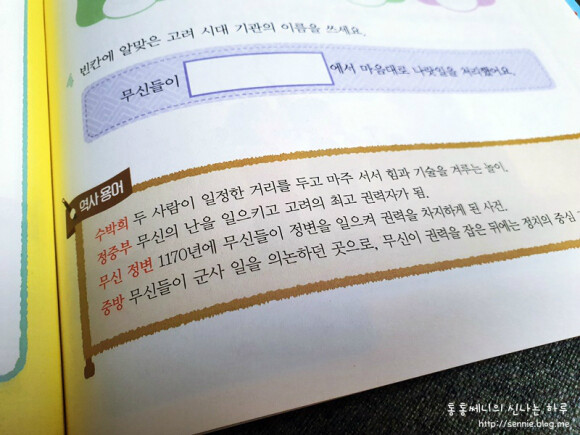 4 빈칸에 알맞은 고려 시대 기관의 이름을 쓰세요.
무신들이 에서 마음대로 나랏일을 처리했어요.
역사 용어
수박희 두 사람이 일정한 거리를 두고 마주 서서 힘과 기술을 겨루는 놀이.
정중부 무신의 난을 일으키고 고려의 최고 권력자가 됨.
무신 정변 1170년에 무신들이 정변을 일으켜 권력을 차지하게 된 사건.
중방 무신들이 군사 일을 의논하던 곳으로, 무신이 권력을 잡은 뒤에는 정치의 중심
통통쎄니의 신나는 하루
http://sennie.blog.me